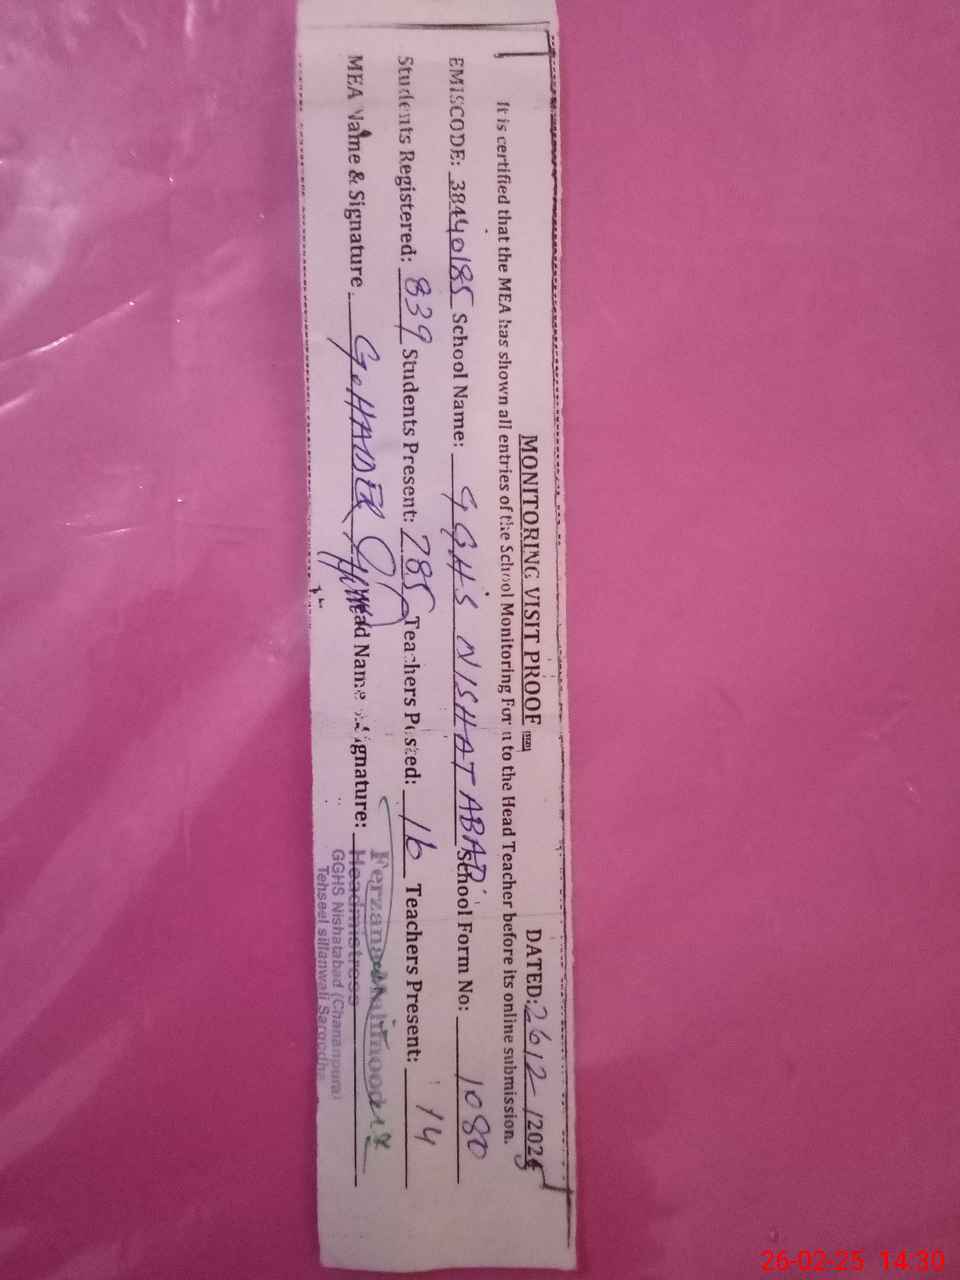 MONITORING VISIT PROOF DATED: 26/2/2025
It is certified that the MEA has shown all entries of the School Monitoring Form to the Head Teacher before its online submission.
EMISCODE: 38440185 School Name: GGHS NISHATABAD School Form No: 1080
Students Registered: 839 Students Present: 785 Teachers Posted: 16 Teachers Present: 14
MEA Name & Signature G. HAIDER Head Name Signature:
Headmistress
GGHS Nishatabad (Chananpura)
Tehseel sillanwali Sargodha
26-02-25 14:30